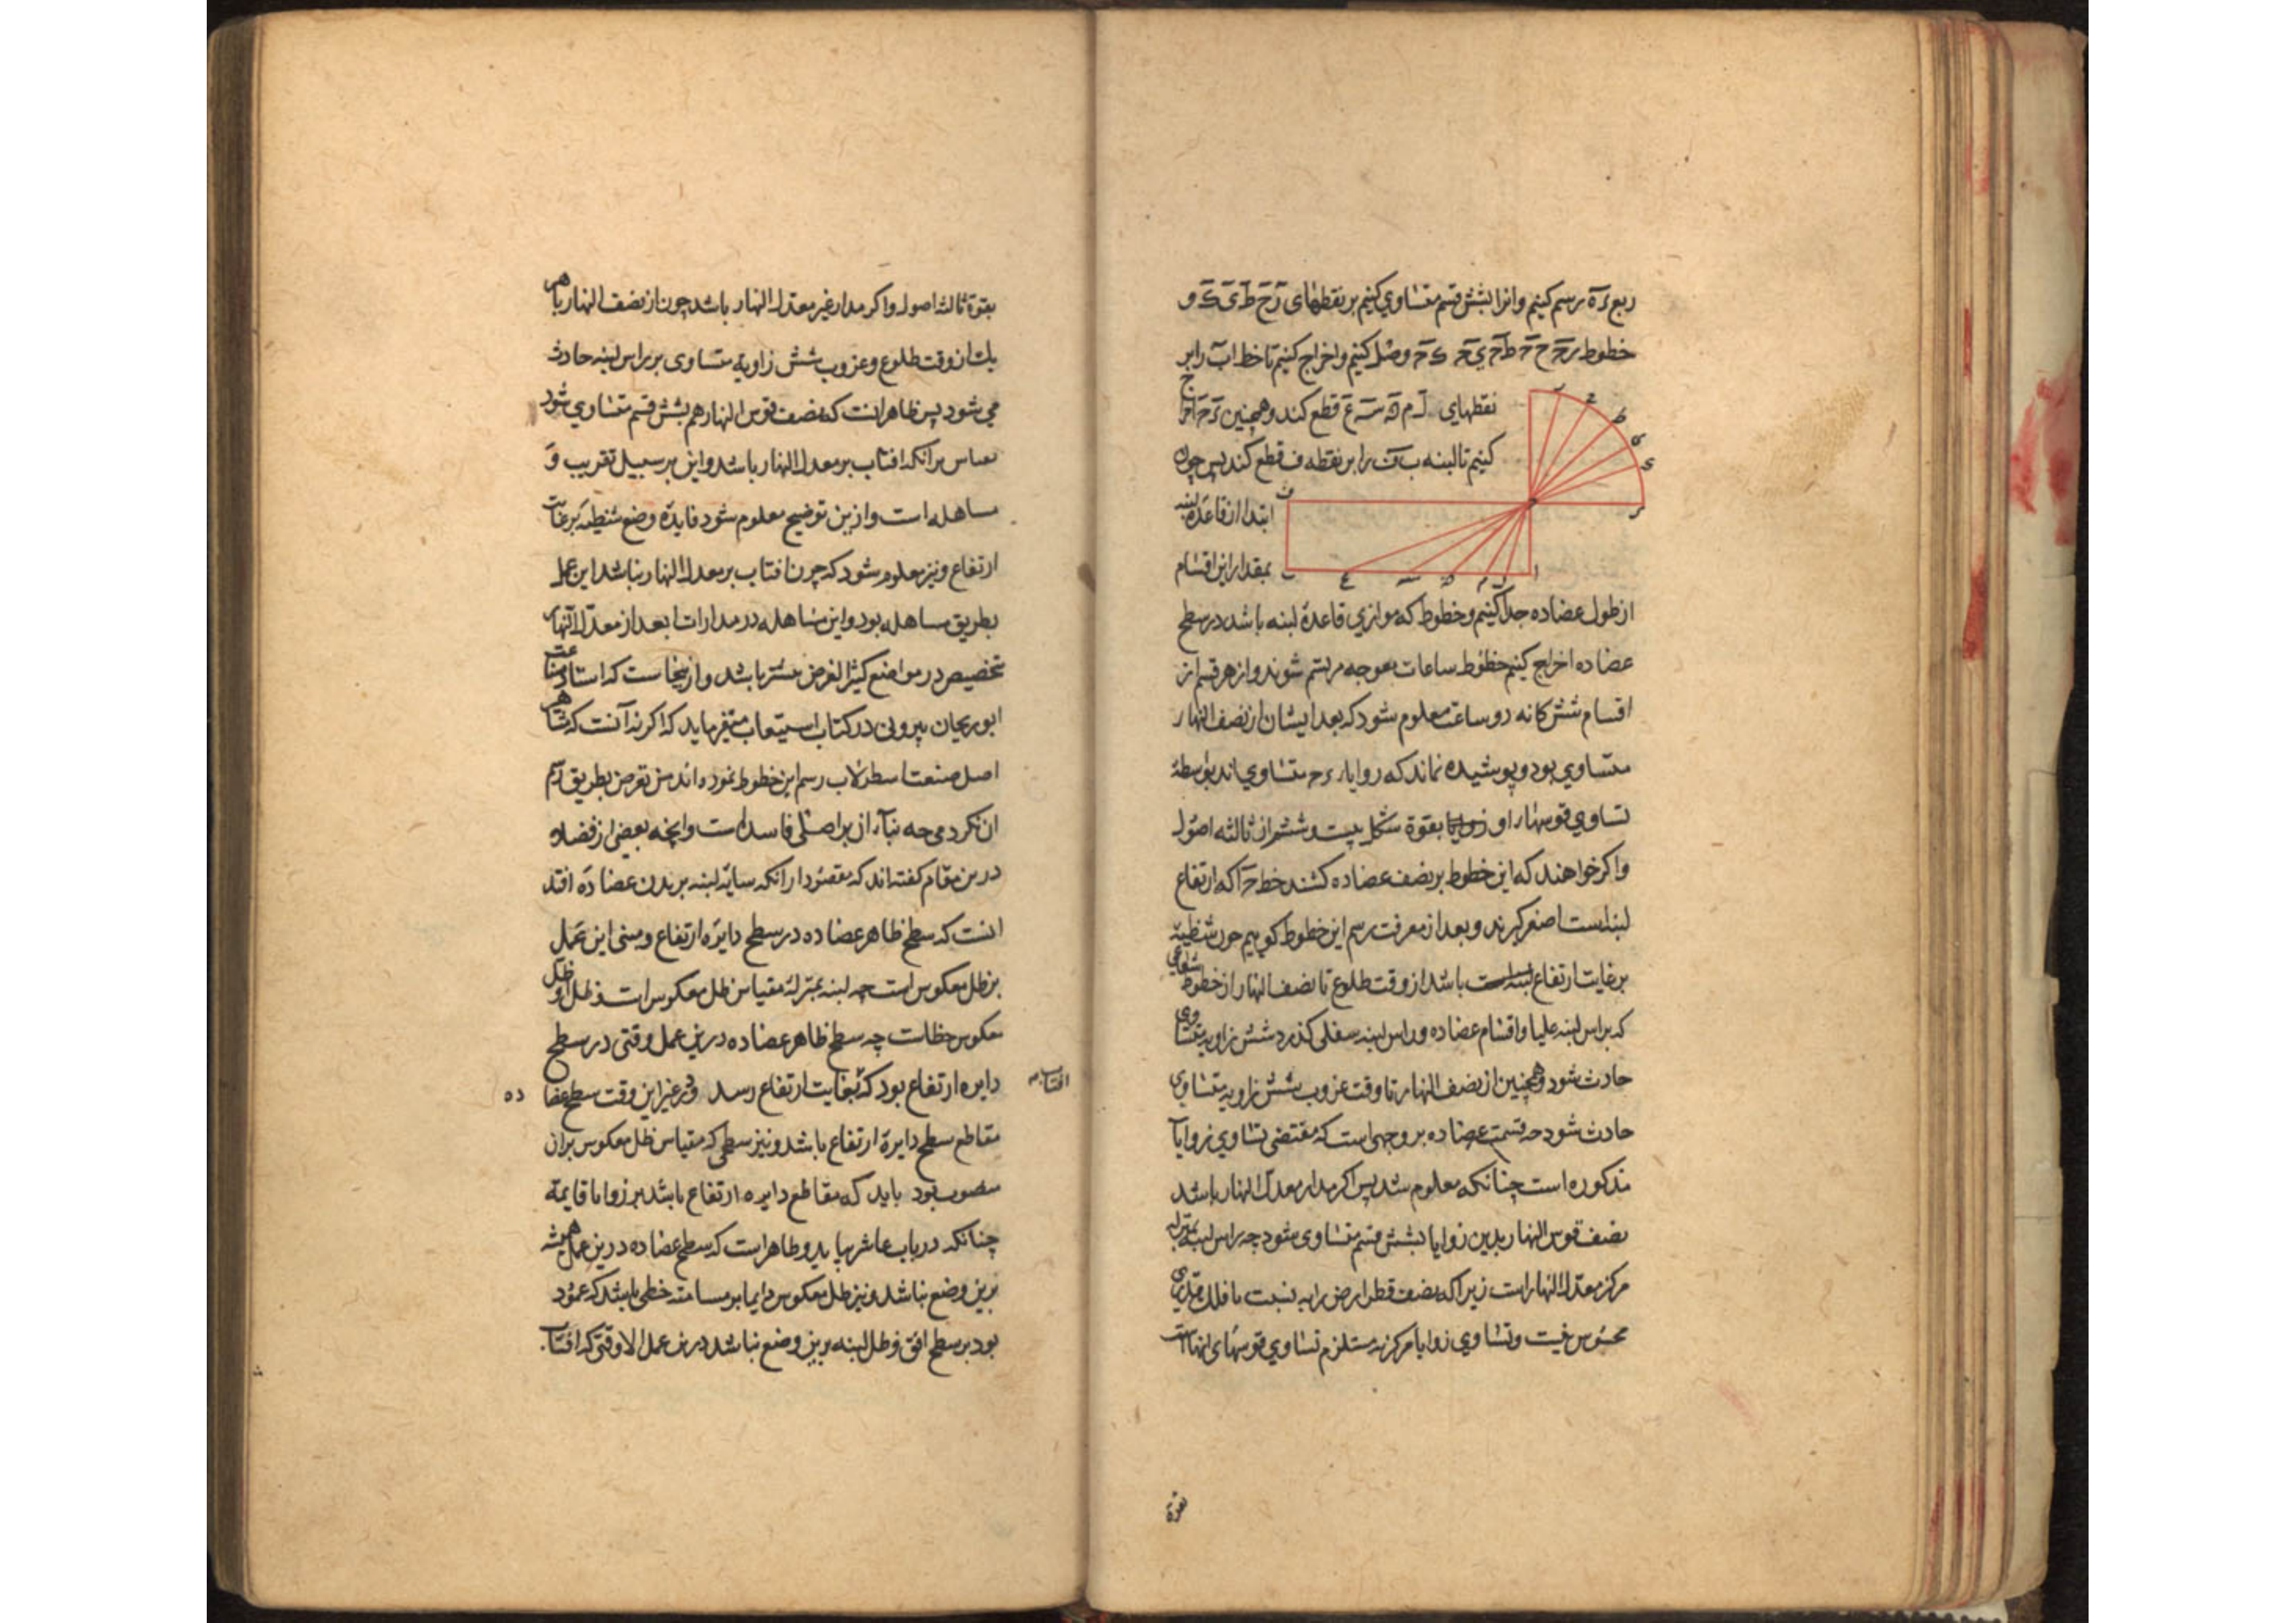 ربع ره رسم کنیم و انرا بشش قسم متساوی کنیم بر نقطهای ز ح ط ی ک و
خطوط وصل کنیم و اخراج کنیم تا خط اب را بر
نقطهای ل م ن س ع قطع کند و همچنین
کنیم تا لبنه ب ف را بر نقطه ف قطع کند پس چون
ابتدا از قاعده لبنه
بمقدار این اقسام
از طول عضاده جدا کنیم و خطوط که موازی قاعده لبنه باشد در سطح
عضاده اخراج کنیم خطوط ساعات معوجه مرتسم شوند و از هر قسم از
اقسام شش کانه دو ساعت معلوم شود که بعد ایشان از نصف النهار
متساوی بود و پوشیده نماند که زوایا متساوی اند بواسطه
تساوی قوسها بقوة شکل بیست و ششم از ثالثه اصول
و اکر خواهند که این خطوط بر نصف عضاده کشند خط ح ا که ارتفاع
لبنه است اصغر کیرند و بعد از معرفت رسم این خطوط کوییم چون شظیه
بر غایت ارتفاع باشد از وقت طلوع تا نصف النهار از خطوط شعاعی
که براس لبنه علیا و اقسام عضاده و راس لبنه سفلی کذرد شش زاویه متساوی
حادث شود و همچنین از نصف النهار تا وقت غروب شش زاویه متساوی
حادث شود چه قسمت عضاده بر وجهی است که مقتضی تساوی زوایا
مذکوره است چنانکه معلوم شد پس اکر مدار معدل النهار باشد
نصف قوس النهار بدین زوایا بشش قسم متساوی شود چه راس لبنه بمنزله
مرکز معدل النهار است زیرا که نصف قطر ارض را به نسبت با فلک قدری
محسوس نیست و تساوی زوایا مرکزیه مستلزم تساوی قوسهای انهاست
بقوة
بقوة ثالثه اصول و اکر مدار غیر معدل النهار باشد چون از نصف النهار تا هر
یک از وقت طلوع و غروب شش زاویه متساوی بر راس لبنه حادث
می شود پس ظاهر انست که نصف قوس النهار هم بشش قسم متساوی شود
بقیاس بر انکه افتاب بر معدل النهار باشد و این بر سبیل تقریب و
مساهله است و ازین توضیح معلوم شود فایده وضع شظیه بر غایت
ارتفاع و نیز معلوم شود که چون افتاب بر معدل النهار نباشد این عمل
بطریق مساهله بود و این مساهله در مدارات ابعد از معدل النهار
تخصیص در مواضع کثیر العرض بیشتر باشد و از ینجاست که استاد صناعت
ابو ریحان بیرونی در کتاب استیعاب میفرماید که اکر نه آنست که مشاهیر
اصل صنعت اسطرلاب رسم این خطوط نموده اند من تعرض بطریق رسم
ان نکردمی چه بناء آن بر اصلی فاسد است و انچه بعضی از فضلاء
درین مقام کفته اند که مقصود از انکه سایه لبنه بر بدن عضاده افتد
انست که سطح ظاهر عضاده در سطح دایره ارتفاع و مبنی این عمل
بر ظل معکوس است چه لبنه بمنزله مقیاس ظل معکوس است و ظل او ظل
معکوس خطاست چه سطح ظاهر عضاده درین عمل وقتی در سطح
دایره ارتفاع بود که افتاب بغایت ارتفاع رسد و در غیر این وقت سطح عضاده
مقاطع سطح دایره ارتفاع باشد و نیز سطحی که مقیاس ظل معکوس بران
منصوب بود باید که مقاطع دایره ارتفاع باشد بر زوایا قایمه
چنانکه در باب عاشر بیاید و ظاهر است که سطح عضاده درین عمل همیشه
برین وضع نباشد و نیز ظل معکوس دایما بر مسامته خطی باشد که عمود
بود بر سطح افق و ظل لبنه برین وضع نباشد درین عمل الا وقتی که افتاب